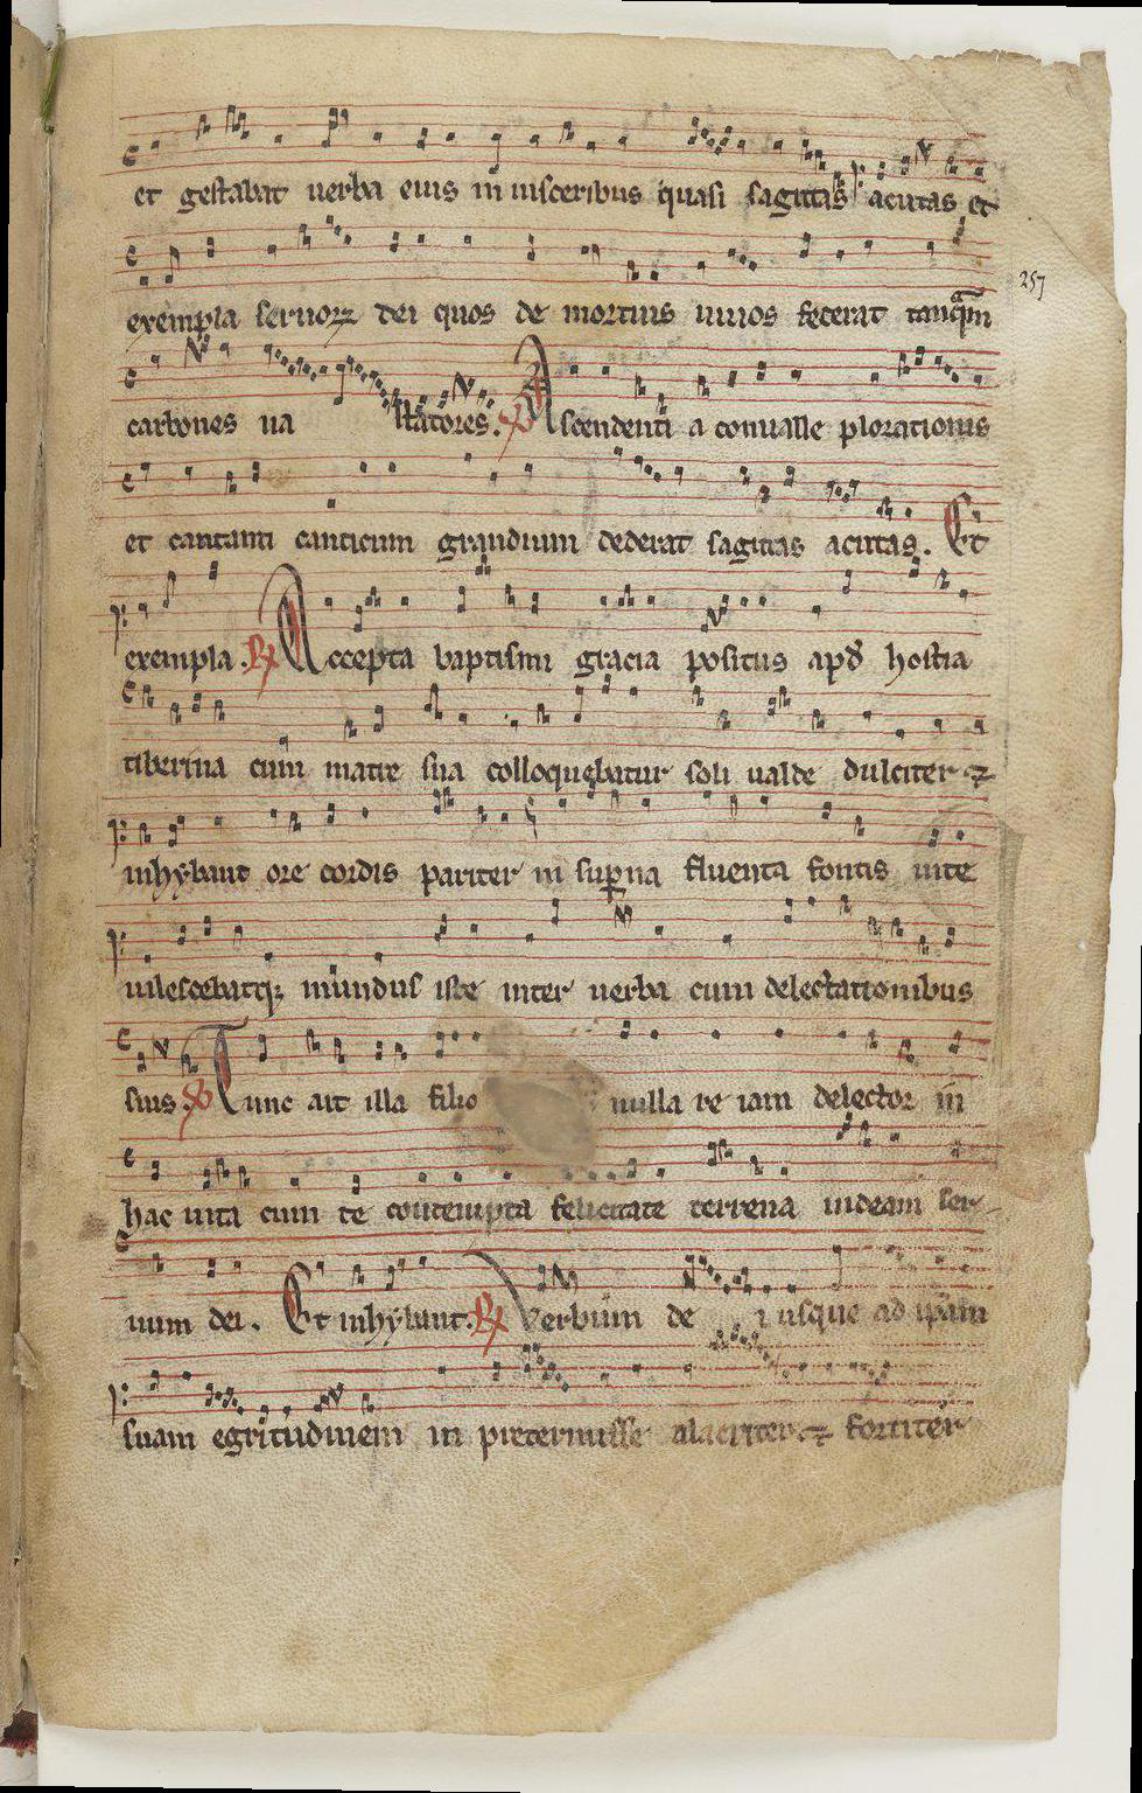 et gestabat uerba eius in uisceribus quasi sagittas acutas et
257
exempla seruoꝝ dei quos de mortuis uiuos fecerat tanqᷓm
carbones ua statores. ℣ Ascendenti a conualle plorationis
et cantanti canticum graduum dederat sagittas acutas. Et
exempla. ℟ Accepta baptismi gracia positus apd̓ hostia
tiberina cum matre sua colloquebatur soli ualde dulciter ⁊
inhybant ore cordis pariter in suꝑna fluenta fontis uite
uilescebatqꝫ mundus iste inter uerba cum delectationibus
suis. ℣ Tunc ait illa filio nulla re iam delector in
hac uita cum te contempta felicitate terrena uideam ser-
uum dei. Et inhybant. ℟ Verbum de i usque ad ip̄am
suam egritudinem in pretermisse alacriter ⁊ fortiter